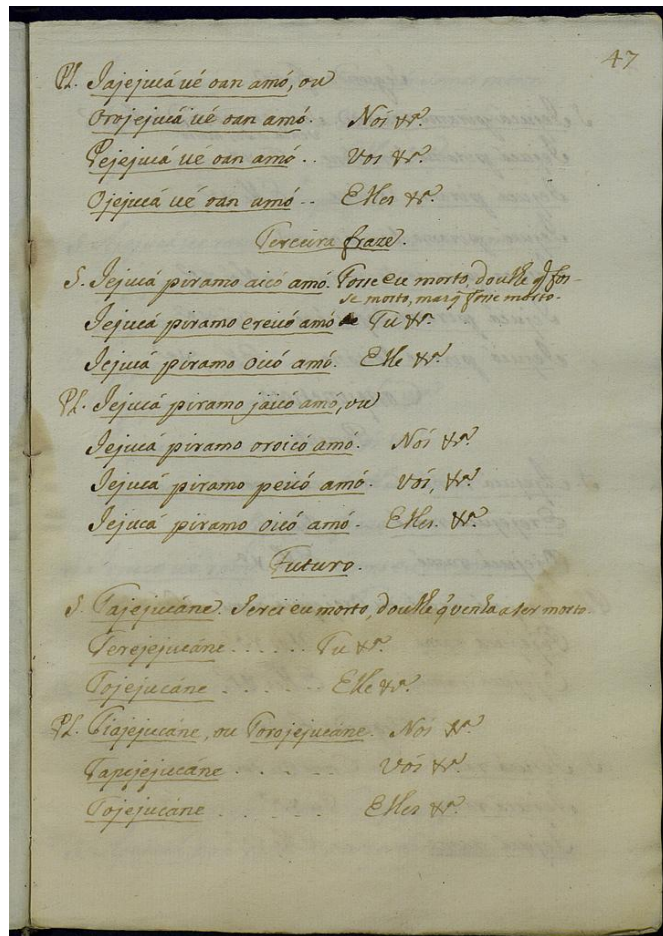 47
Pl. Jajejucá ué oan amó, ou
Orojejucá ué oan amó. Nós &ª.
Pejejucá ué oan amó.. Vos &ª.
Ojejucá ué oan amó.. Elles &ª.
Terceira fraze.
S. Jejucá piramo aicó amó. Fosse eu morto, doulhe q̃ fos-
se morto, mas q̃ fosse morto.
Jejucá piramo ereicó amó Tu &ª.
Jejucá piramo oicó amó. Elle &ª.
Pl. Jejucá piramo jaicó amó, ou
Jejucá piramo oroicó amó. Nós &ª
Jejucá piramo peicó amó. Vós, &ª.
Jejucá piramo oicó amó. Elles. &ª.
Futuro.
S. Tajejucáne. Serei eu morto, doulhe q̃ venha a ser morto.
Terejejucáne...... Tu &ª.
Tojejucáne..... Elle &ª.
Pl. Tiajejucáne, ou Torojejucáne. Nós &ª.
Tapejejucáne..... Vós &ª.
Tojejucáne...... Elles &ª.